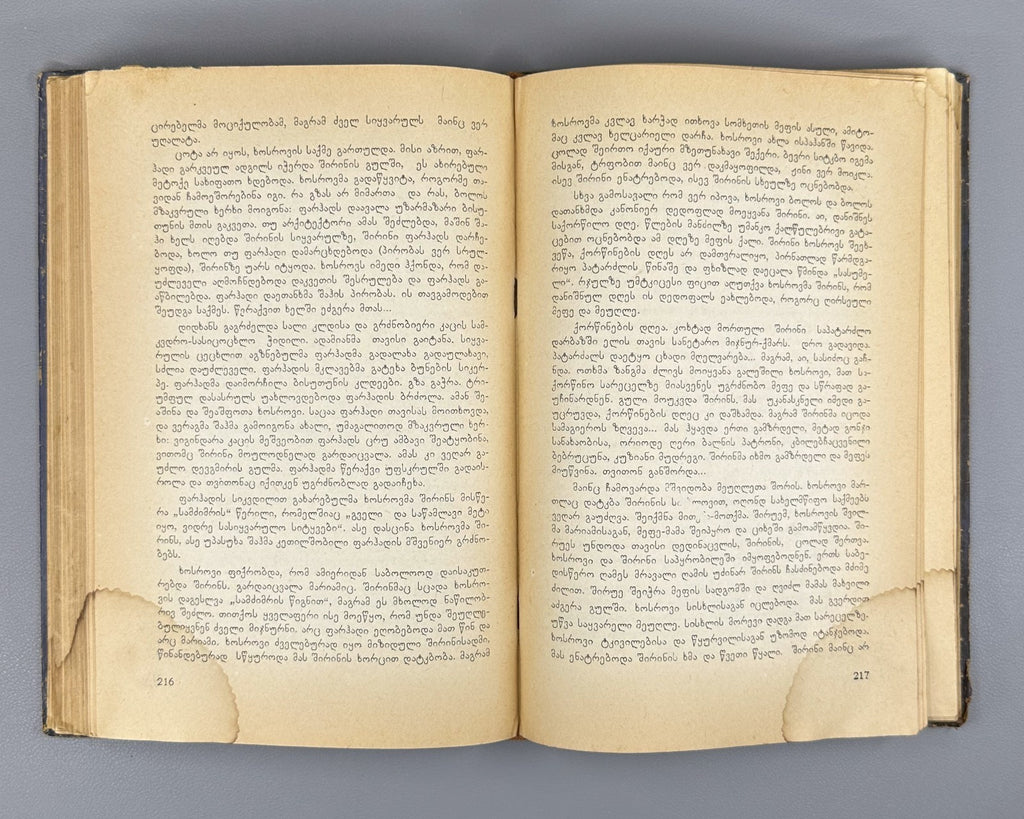 ცირებელმა მოციქულობამ, მაგრამ ძველ სიყვარულს მაინც ვერ
უღალატა.
ცოტა არ იყოს, ხოსროვის საქმე გართულდა. მისი აზრით, ფარ-
ჰადი გარკვეულ ადგილს იჭერდა შირინის გულში, ეს ახირებული
მეტოქე სახიფათო ხდებოდა. ხოსროვმა გადაწყვიტა, როგორმე თა-
ვიდან ჩამოეშორებინა იგი. რა გზას არ მიმართა და რას, ბოლოს
მზაკვრული ხერხი მოიგონა: ფარჰადს დაავალა უზარმაზარი ბისუ-
თუნის მთის გაკვეთა. თუ არქიტექტორი ამას შეძლებდა, მაშინ შა-
ჰი ხელს იღებდა შირინის სიყვარულზე, შირინი ფარჰადს დარჩე-
ბოდა, ხოლო თუ ფარჰადი დამარცხდებოდა (პირობას ვერ სრულ-
ყოფდა), შირინზე უარს იტყოდა. ხოსროვს იმედი ჰქონდა, რომ და-
უძლეველი აღმოჩნდებოდა დაკვეთის შესრულება და ფარჰადს გა-
აწბილებდა. ფარჰადი დაეთანხმა შაჰის პირობას. ის თავგამოდებით
შეუდგა საქმეს. წერაქვით ხელში ეძგერა მთას...
დიდხანს გაგრძელდა სალი კლდისა და გრძნობიერი კაცის სამ-
კვდრო-სასიცოცხლო ჭიდილი. ადამიანმა თავისი გაიტანა. სიყვა-
რულის ცეცხლით აგზნებულმა ფარჰადმა გადალახა გადაულახავი,
სძლია დაუძლეველი. ფარჰადის მკლავებმა გატეხა ბუნების სიკერ-
პე. ფარჰადმა დაიმორჩილა ბისუთუნის კლდეები. გზა გაჭრა. ტრი-
უმფულ დასასრულს უახლოვდებოდა ფარჰადის ბრძოლა. ამან შე-
აშინა და შეაშფოთა ხოსროვი. საცაა ფარჰადი თავისას მოითხოვდა,
და ვერაგმა შაჰმა გამოიგონა ახალი, უმაგალითოდ მზაკვრული ხერ-
ხი: ვიგინდარა კაცის მეშვეობით ფარჰადს ცრუ ამბავი შეატყობინა,
ვითომც შირინი მოულოდნელად გარდაიცვალა. ამას კი ვეღარ გა-
უძლო დევგმირის გულმა. ფარჰადმა წერაქვი უფსკრულში გადაის-
როლა და თვითონაც იქითკენ უგრძნობლად გადაიჩეხა.
ფარჰადის სიკვდილით გახარებულმა ხოსროვმა შირინს მისწე-
რა „სამძიმრის“ წერილი, რომელშიაც „გველი და საწამლავი მეტი
იყო, ვიდრე სასიყვარულო სიტყვები“. ასე დასცინა ხოსროვმა ში-
რინს, ასე უპასუხა შაჰმა კეთილშობილი ფარჰადის მშვენიერ გრძნო-
ბებს.
ხოსროვი ფიქრობდა, რომ ამიერიდან საბოლოოდ დაისაკუთ-
რებდა შირინს. გარდაიცვალა მარიამიც. შირინმაც სცადა ხოსრო-
ვის დაგესლვა „სამძიმრის წიგნით“, მაგრამ ეს მხოლოდ ნაწილობ-
რივ შეძლო. თითქოს ყველაფერი ისე მოეწყო, რომ უნდა შეუღლე-
ბულიყვნენ ძველი მიჯნურნი. არც ფარჰადი ეღობებოდა მათ წინ და
არც მარიამი. ხოსროვი ძველებურად იყო მიზიდული შირინისადმი.
წინანდებურად სწყუროდა მას შირინის ხორცით დატკბობა. მაგრამ
216
ხოსროვმა კვლავ ხარჭად ითხოვა სომხეთის მეფის ასული, ამიტო-
მაც კვლავ ხელცარიელი დარჩა. ხოსროვი ახლა ისპაჰანში წავიდა.
ცოლად შეირთო იქაური მზეთუნახავი შექერი. ბევრი სიტკბო იგემა
მისგან, ტრფობით მაინც ვერ დაკმაყოფილდა, ჟინი ვერ მოიკლა.
ისევ შირინი ენატრებოდა, ისევ შირინის სხეულზე ოცნებობდა.
სხვა გამოსავალი რომ ვერ იპოვა, ხოსროვი ბოლოს და ბოლოს
დათანხმდა კანონიერ დედოფლად მოეყვანა შირინი. აი, დანიშნეს
საქორწილო დღე. წლების მანძილზე უმანკო ქალწულებრივი გატა-
ცებით ოცნებობდა ამ დღეზე მეფის ქალი. შირინი ხოსროვს შეეხ-
ვეწა, ქორწინების დღეს არ დამთვრალიყო, პირნათლად წარმდგა-
რიყო პატარძლის, წინაშე და ფხიზლად დაეცალა წმინდა „სასუმე-
ლი“. რჯულზე უმტკიცესი ფიცით აღუთქვა ხოსროვმა შირინს, რომ
დანიშნულ დღეს ის დედოფალს ეახლებოდა, როგორც ღირსეული
მეფე და მეუღლე.
ქორწინების დღეა. კოხტად მორთული შირინი საპატარძლო
დარბაზში ელის თავის სანეტარო მიჯნურ-ქმარს. დრო გადავიდა.
პატარძალს დაეტყო ცხადი მღელვარება... მაგრამ, აი, სასიძოც გაჩ-
ნდა. ოთხმა ზანგმა ძლივს მოიყვანა გალეშილი ხოსროვი, მათ სა-
ქორწინო სარეცელზე მიასვენეს უგრძნობო მეფე და სწრაფად გა-
უჩინარდნენ. გული მოუკვდა შირინს. მას უკანასკნელი იმედი გა-
უცრუვდა, ქორწინების დღეც კი დაშხამდა. მაგრამ შირინმა იცოდა
სამაგიეროს ზღვევა... მას ჰყავდა ერთი გამზრდელი, მეტად გონჯი
სანახაობისა, ორიოდე ღერი ბალნის პატრონი, კბილებჩაცვენილი
ბებრუცუნა, კუზიანი მუდრეგი. შირინმა იხმო გამზრდელი და მეფეს
მიუწვინა. თვითონ განშორდა...
მაინც ჩამოვარდა მშვიდობა მეუღლეთა შორის. ხოსროვი მარ-
თლაც დატკბა შირინის ოღონდ სახელმწიფო საქმეებს
ვეღარ გაუძღვა. შეიქმნა შირუემ, ხოსროვის შვილ-
მა მარიამისაგან, მეფე-მამა შეიპყრო და ციხეში გამოამწყვდია. ში-
რუეს უნდოდა თავისი დედინაცვლის, შირინის, ცოლად შერთვა.
ხოსროვი და შირინი საპყრობილეში იმყოფებოდნენ. ერთს საბე-
დისწერო ღამეს მრავალი ღამის უძინარ შირინს ჩასძინებოდა მძიმე
ძილით. შირუე შეიჭრა მეფის სადგომში და ღვიძლ მამას მახვილი
აძგერა გულში. ხოსროვი სისხლისაგან იცლებოდა. მას გვერდით
უწვა საყვარელი მეუღლე. სისხლის მორევი დადგა მათ სარეცელზე.
ხოსროვი ტკივილებისა და წყურვილისაგან უზომოდ იტანჯებოდა.
მას ენატრებოდა შირინის ხმა და წვეთი წყალი. შირინი მაინც არ
217